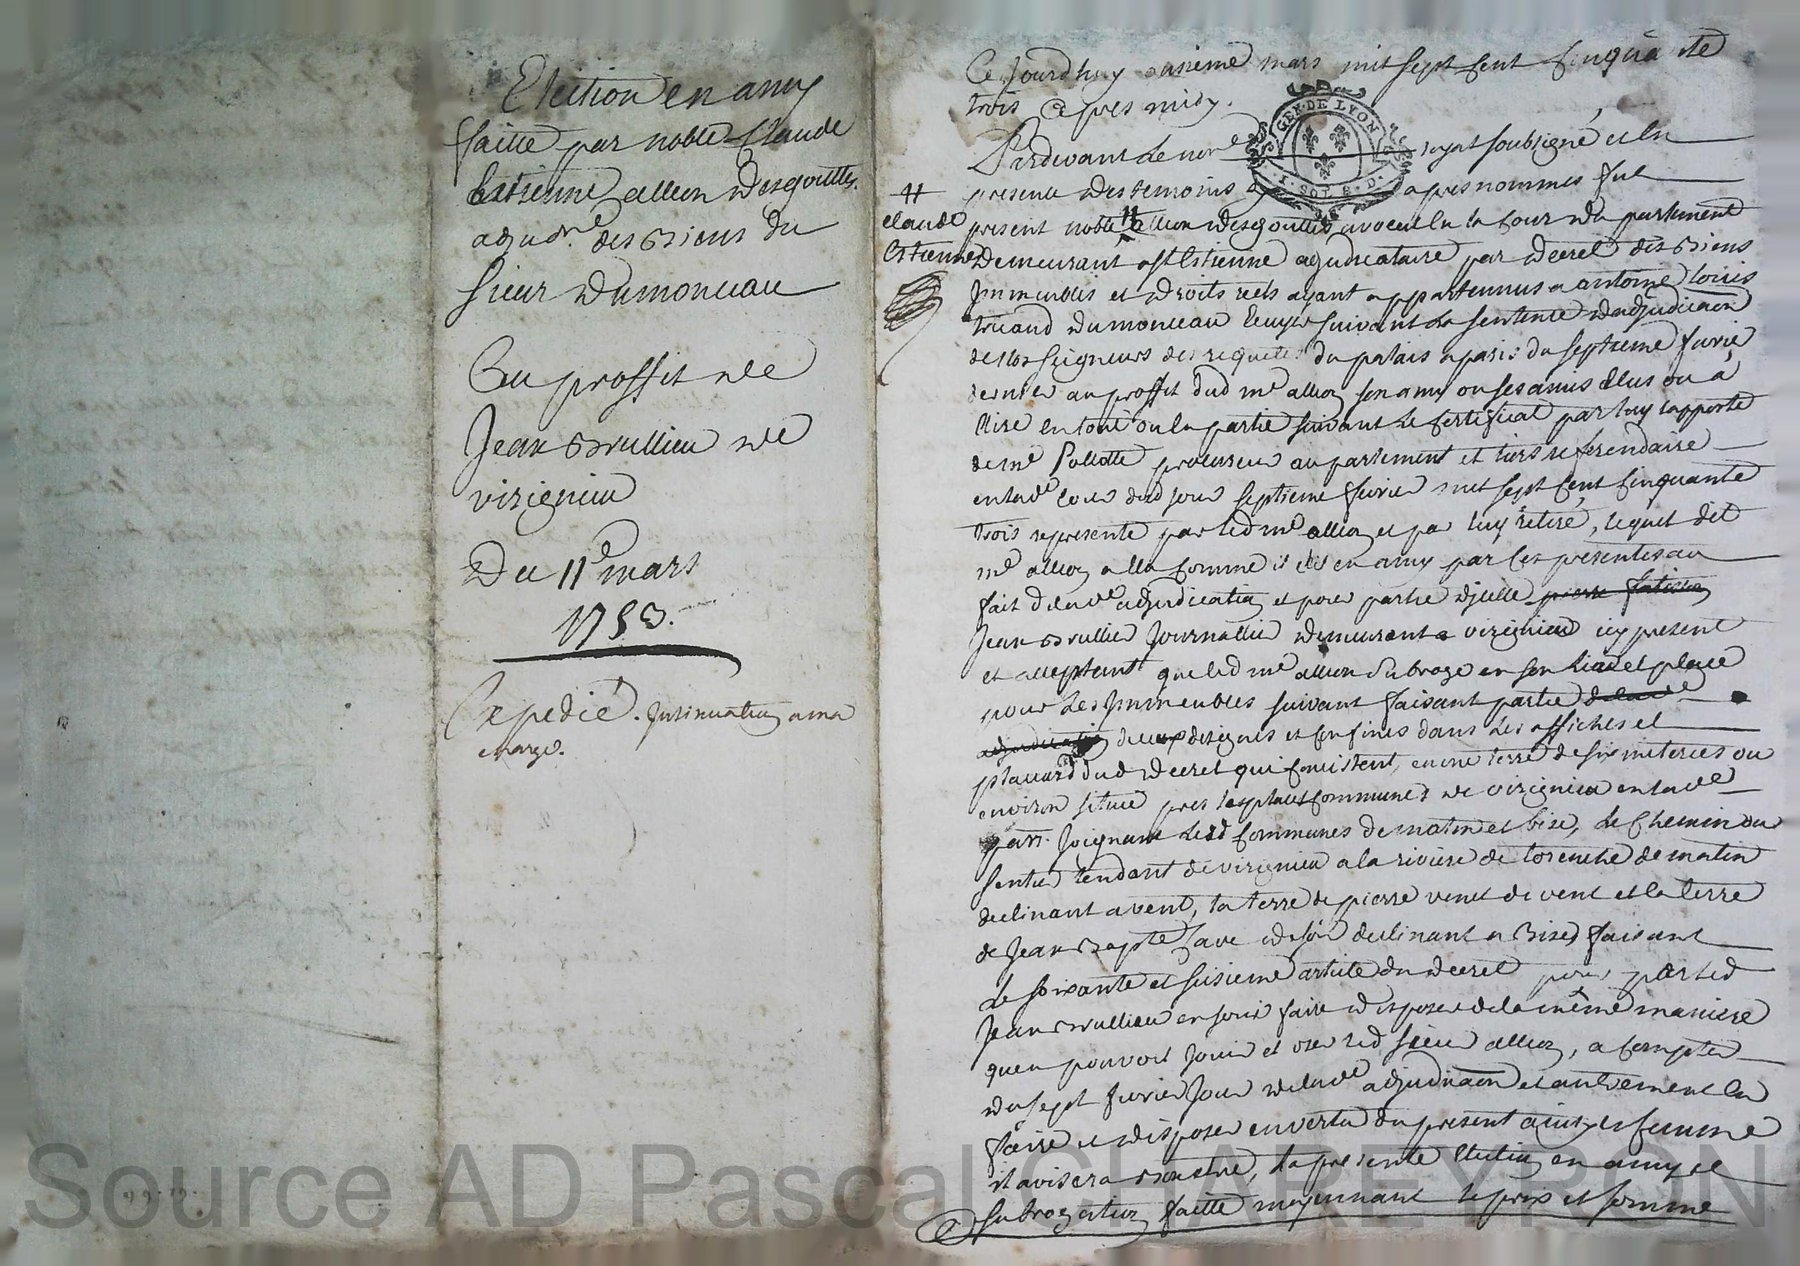 Election en amy
faitte par noble Claude
Estienne allion Desgouttes
adjud.re des Biens du
sieur Dumonceau
Au proffit de
Jean Brullieu de
virignieu
Du 11e mars
1753.
Expedié. Insinuation a ma
charge.
Ce Jourdhuy onzieme mars mil sept cent cinquante
trois apres midy.
GEN. DE LYON
I. SOL 8. D.
Pardevant le no.re royal soubsigné et en
presence des temoins cy apres nommes fut
present noble # allion Desgouttes avocat en la cour du parlement
# claude
Estienne
Demeurant a St Estienne adjudicataire par decret des Biens
Immeubles et Droits reels ayant appartennus a antoine Louis
truand Dumonceau Ecuyer suivant la sentence dadjudicaon
de nos seigneurs des requetes du palais a paris du septieme fevrier
dernier au proffit dud me allion son amy ou ses amis Elus ou a
Elire en tout ou en partie suivant le certificat par luy rapporté
de me Pollotte procureur au parlement et tiers referendaire
en lad.e cour dud jour septieme fevrier mil sept cent cinquante
trois representé par led me allion et par luy retiré, lequel dit
me allion a nommé et elu en amy par ces presentes au
fait de lad.e adjudication et pour partie dicelle pierre
Jean Brullieu Journallier demeurant a virignieu icy present
et acceptant que led me allion subroge en son lieu et place
pour les Immeubles suivant faisant partie de lad.e
adjudication deceux designes et confines dans les affiches et
placard dud decret qui consistent, en une terre de six meterées ou
environ située pres les places communes de virignieu en lad.e
parr. Joignant lesd communes de matin et bise, le chemin ou
sentier tendant de virignieu a la riviere de toranche de matin
declinant a vent, la terre de pierre venet de vent et la terre
de Jean Bapte de soir declinant a Bise, faisant
le soixante et sixieme article du decret pour par led
Jean Brullieu en jouir faire et disposer de la même maniere
quen pouvoit jouir et user led sieur allion, a compter
du sept fevrier Jour de lad.e adjudicaon et autrement en
faire et disposer en vertu du present ainsy et comme
il avisera bon etre, la presente Election en amy et
subrogation faitte moyennant le prix et somme
Source AD Pascal CHAREYRON